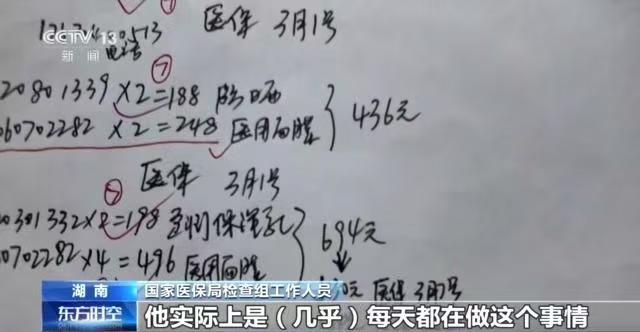 CCTV 13
新闻
513
电话
医保 3月1号
⑦
20801339 ×2=188
060702282 ×2=248 医用面膜
436元
医保 3月1号
⑦
0301332×2=198
0702282×4=496 医用面膜
694元
医保 3月1号
湖南
国家医保局检查组工作人员
东方时空
他实际上是（几乎）每天都在做这个事情